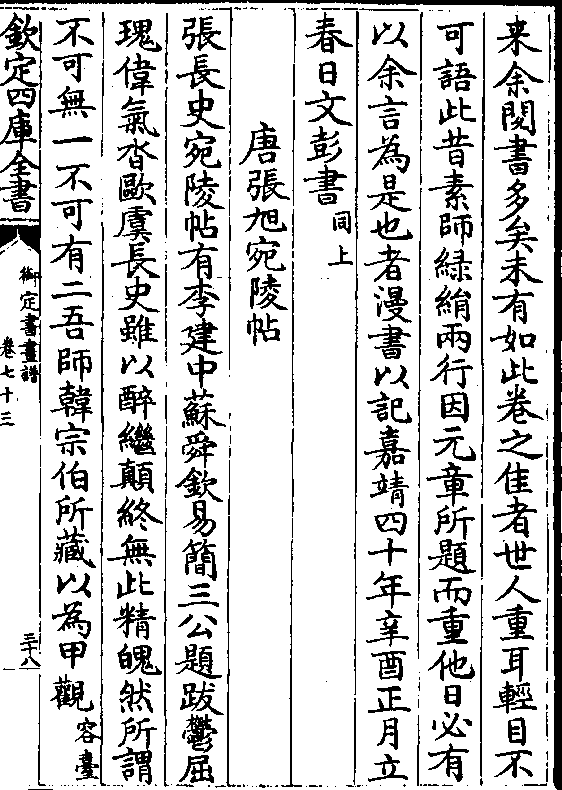 来余閱書多矣未有如此卷之佳者世人重耳輕目不
可語此昔素師緑綃兩行因元章所題而重他日必有
以余言為是也者漫書以記嘉靖四十年辛酉正月立
春日文彭書同上
唐張旭宛陵帖
張長史宛陵帖有李建中蘇舜欽易簡三公題跋鬱屈
瑰偉氣沓歐虞長史雖以醉繼顛終無此精魄然所謂
不可無一不可有二吾師韓宗伯所藏以為甲觀容臺
欽定四庫全書
御定書畫譜
卷七十三
三十八